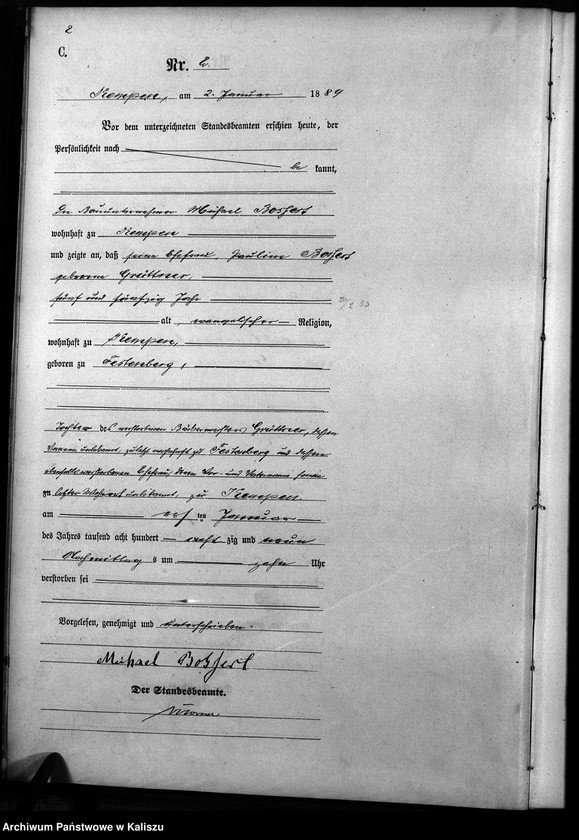 2
C.
Nr. 2.
Kempen, am 2. Januar 1889
Vor dem unterzeichneten Standesbeamten erschien heute, der
Persönlichkeit nach
be kannt,
der Bauunternehmer Michael
wohnhaft zu Kempen
und zeigte an, daß seine Ehefrau, Pauline
geborene
fünf und fünfzig Jahr
alt, evangelischer Religion,
wohnhaft zu Kempen,
geboren zu Festenberg,
Tochter des verstorbenen Bäckermeisters dessen
zuletzt wohnhaft zu Festenberg und dessen
ebenfalls verstorbenen Ehefrau, deren Vor- und Vatername sowie
letzter Wohnort unbekannt, zu Kempen
am ersten Januar
des Jahres tausend acht hundert acht zig und neun
Nachmittags um zehn Uhr
verstorben sei
Vorgelesen, genehmigt und unterschrieben.
Michael
Der Standesbeamte.
Archiwum Państwowe w Kaliszu
szukajwarchiwach.gov.pl